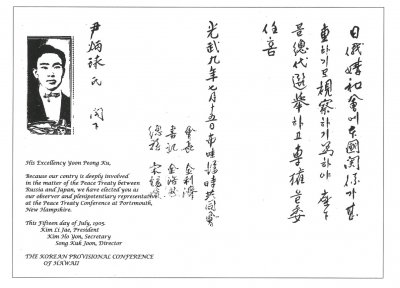 日俄媾和會에本國関係가甚
重하기로視察하기爲하야座下
를總代選擧하고專權을委
任홈
光武九年七月十五日布哇臨時共同會
會長 金利濟
書記 金浩然
尹炳球氏 閤下
His Excellency Yoon Peong Ku,
Because our contry is deeply involved
in the matter of the Peace Treaty between
Russia and Japan, we have elected you as
our observer and plenispotentiary representative
at the Peace Treaty Conference at Portsmouth,
New Hampshire.
This Fifteen day of July, 1905.
Kim Li Jae, President
Kim Ho Yon, Secretary
Song Kuk Joon, Director
THE KOREAN PROVISIONAL CONFERENCE
OF HAWAII